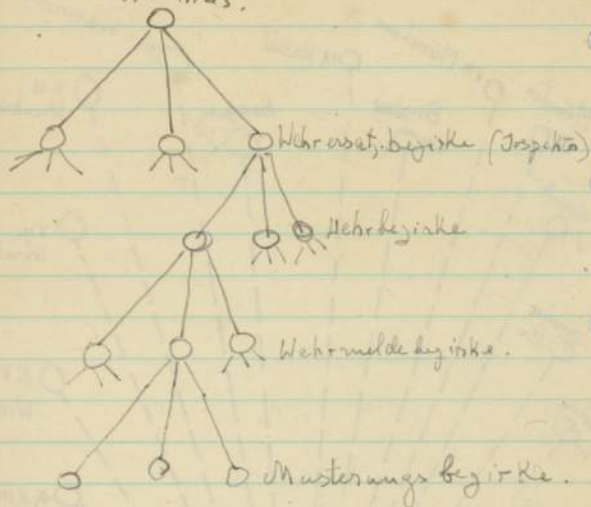 Wehrersatzbezirke (Inspektion)
Wehrbezirke
Wehrmeldebezirke.
Musterungsbezirke.